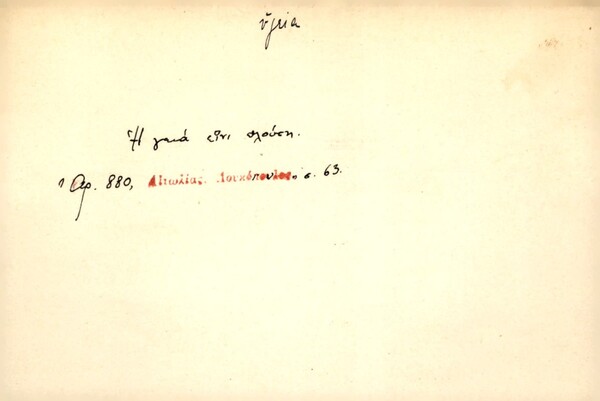 ὑγεία
Ἡ γειά εἶνι πλούση.
Ἀρ. 880, Αἰτωλίας. Λουκόπουλος, σ. 63.